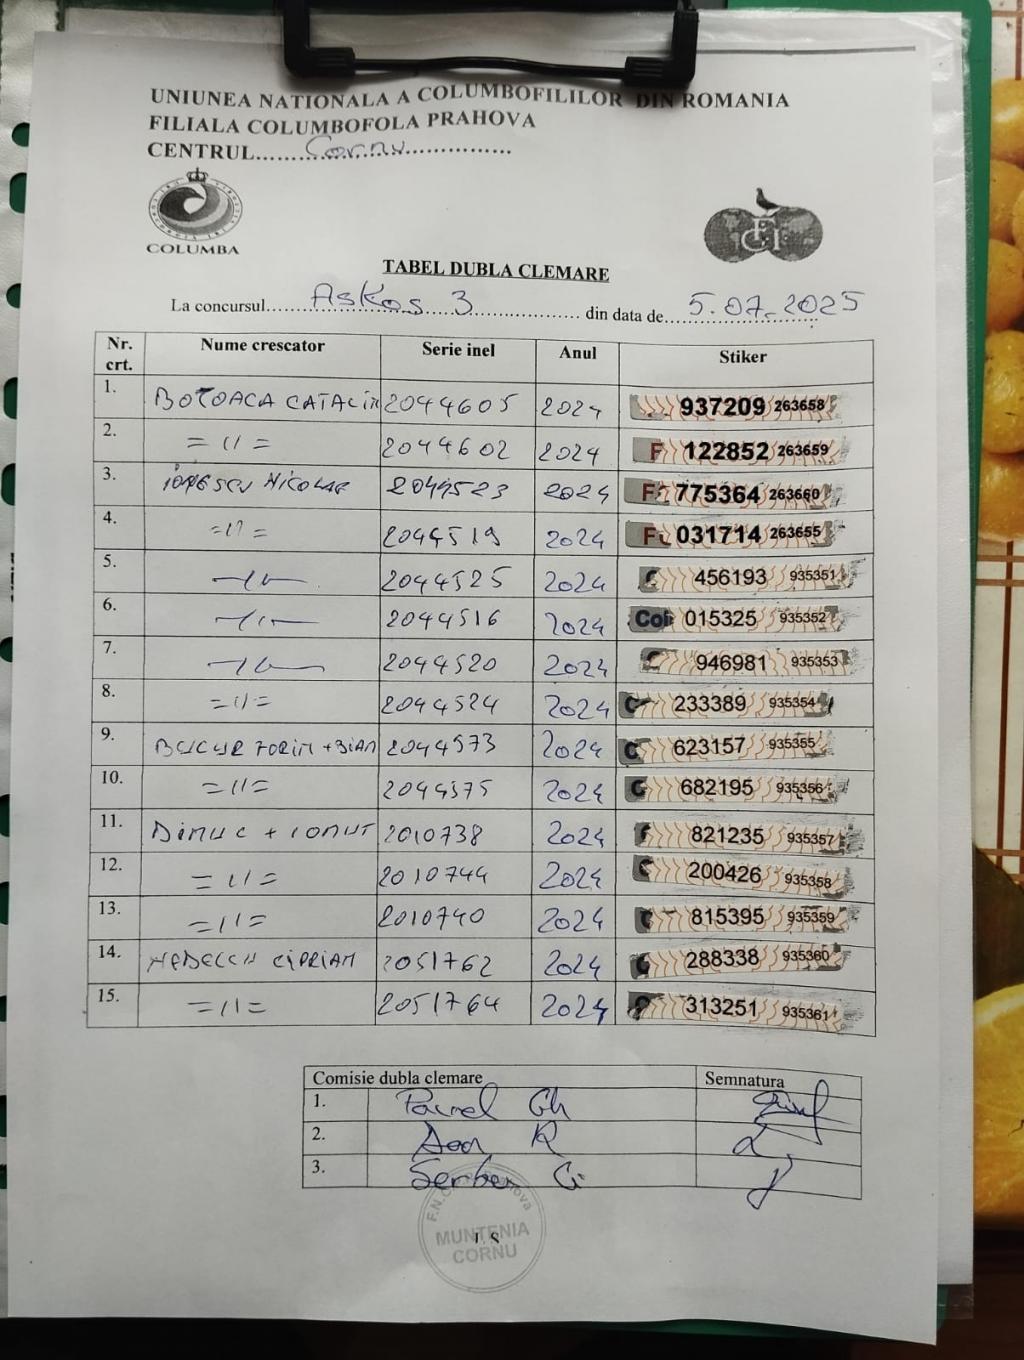 UNIUNEA NATIONALA A COLUMBOFILILOR DIN ROMANIA
FILIALA COLUMBOFOLA PRAHOVA
CENTRUL......Cornu...............
COLUMBA
FCI
TABEL DUBLA CLEMARE
La concursul......Askos 3.................. din data de...5.07.2025
Nr. crt. Nume crescator Serie inel Anul Stiker
1. BOTOACA CATALIN 2044605 2024 937209 263658
2. =11= 2044602 2024 F 122852 263659
3. IONESCU NICOLAE 2044523 2024 F 775364 263660
4. =11= 2044519 2024 F 031714 263655
5. —11— 2044525 2024 C 456193 935351
6. —11— 2044516 2024 Col 015325 935352
7. —11— 2044520 2024 C 946981 935353
8. =11= 2044524 2024 C 233389 935354
9. BUCUR FORIN+BIAN 2044573 2024 C 623157 935355
10. =11= 2044575 2024 C 682195 935356
11. DINU C + IONUT 2010738 2024 821235 935357
12. =11= 2010744 2024 C 200426 935358
13. =11= 2010740 2024 815395 935359
14. CIPRIAN 2051762 2024 288338 935360
15. =11= 2051764 2024 313251 935361
Comisie dubla clemare Semnatura
1. Pavel Gh
2. R
3. Serban G
F.N.C. Prahova
MUNTENIA
CORNU